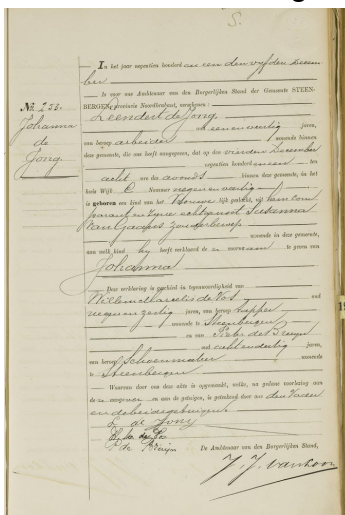 In het jaar negentien honderd en een den vijfden Decem
ber
Is voor ons Ambtenaar van den Burgerlijken Stand der Gemeente STEEN-
BERGEN, Provincie Noordbrabant, verschenen:
No. 253.
Johanna
de
Jong
Leendert de Jong
veertig jaren,
van beroep arbeider wonende binnen
deze gemeente, die ons heeft aangegeven, dat op den vierden December
negentien honderd een ten
acht ure des avonds binnen deze gemeente, in het
huis Wijk C Nommer negen en veertig
is geboren een kind van het Vrouwelijk geslacht, uit hem com
parant en zijne echtgenoot Susanna
van Gaapes zonder beroep
wonende in deze gemeente,
aan welk kind hij heeft verklaard de voornaam te geven van
Johanna
Deze verklaring is geschied in tegenwoordigheid van
Willem Marselis de Vos oud
negen en zestig jaren, van beroep tapper
wonende te Steenbergen
en van Pieter de Bruijn
oud acht en dertig jaren,
van beroep Schoenmaker wonende
te Steenbergen
Waarvan door ons deze akte is opgemaakt, welke, na gedane voorlezing aan
de aangever en aan de getuigen, is geteekend door ons den Vader
en de beide getuigen
L de Jong
de Vos
P. de Bruijn
De Ambtenaar van den Burgerlijken Stand,
J. J. van Loon